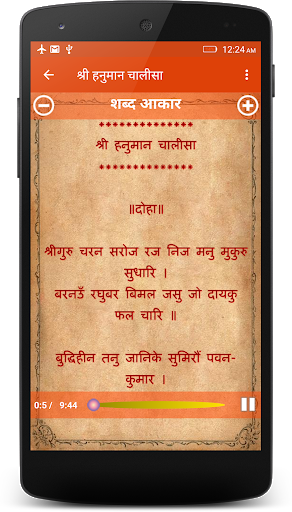 12:24 AM
श्री हनुमान चालीसा
शब्द आकार
*************
श्री हनुमान चालीसा
*************
॥दोहा॥
श्रीगुरु चरन सरोज रज निज मनु मुकुरु
सुधारि ।
बरनउँ रघुबर बिमल जसु जो दायकु
फल चारि ॥
बुद्धिहीन तनु जानिके सुमिरौं पवन-
कुमार ।
0:5 / 9:44